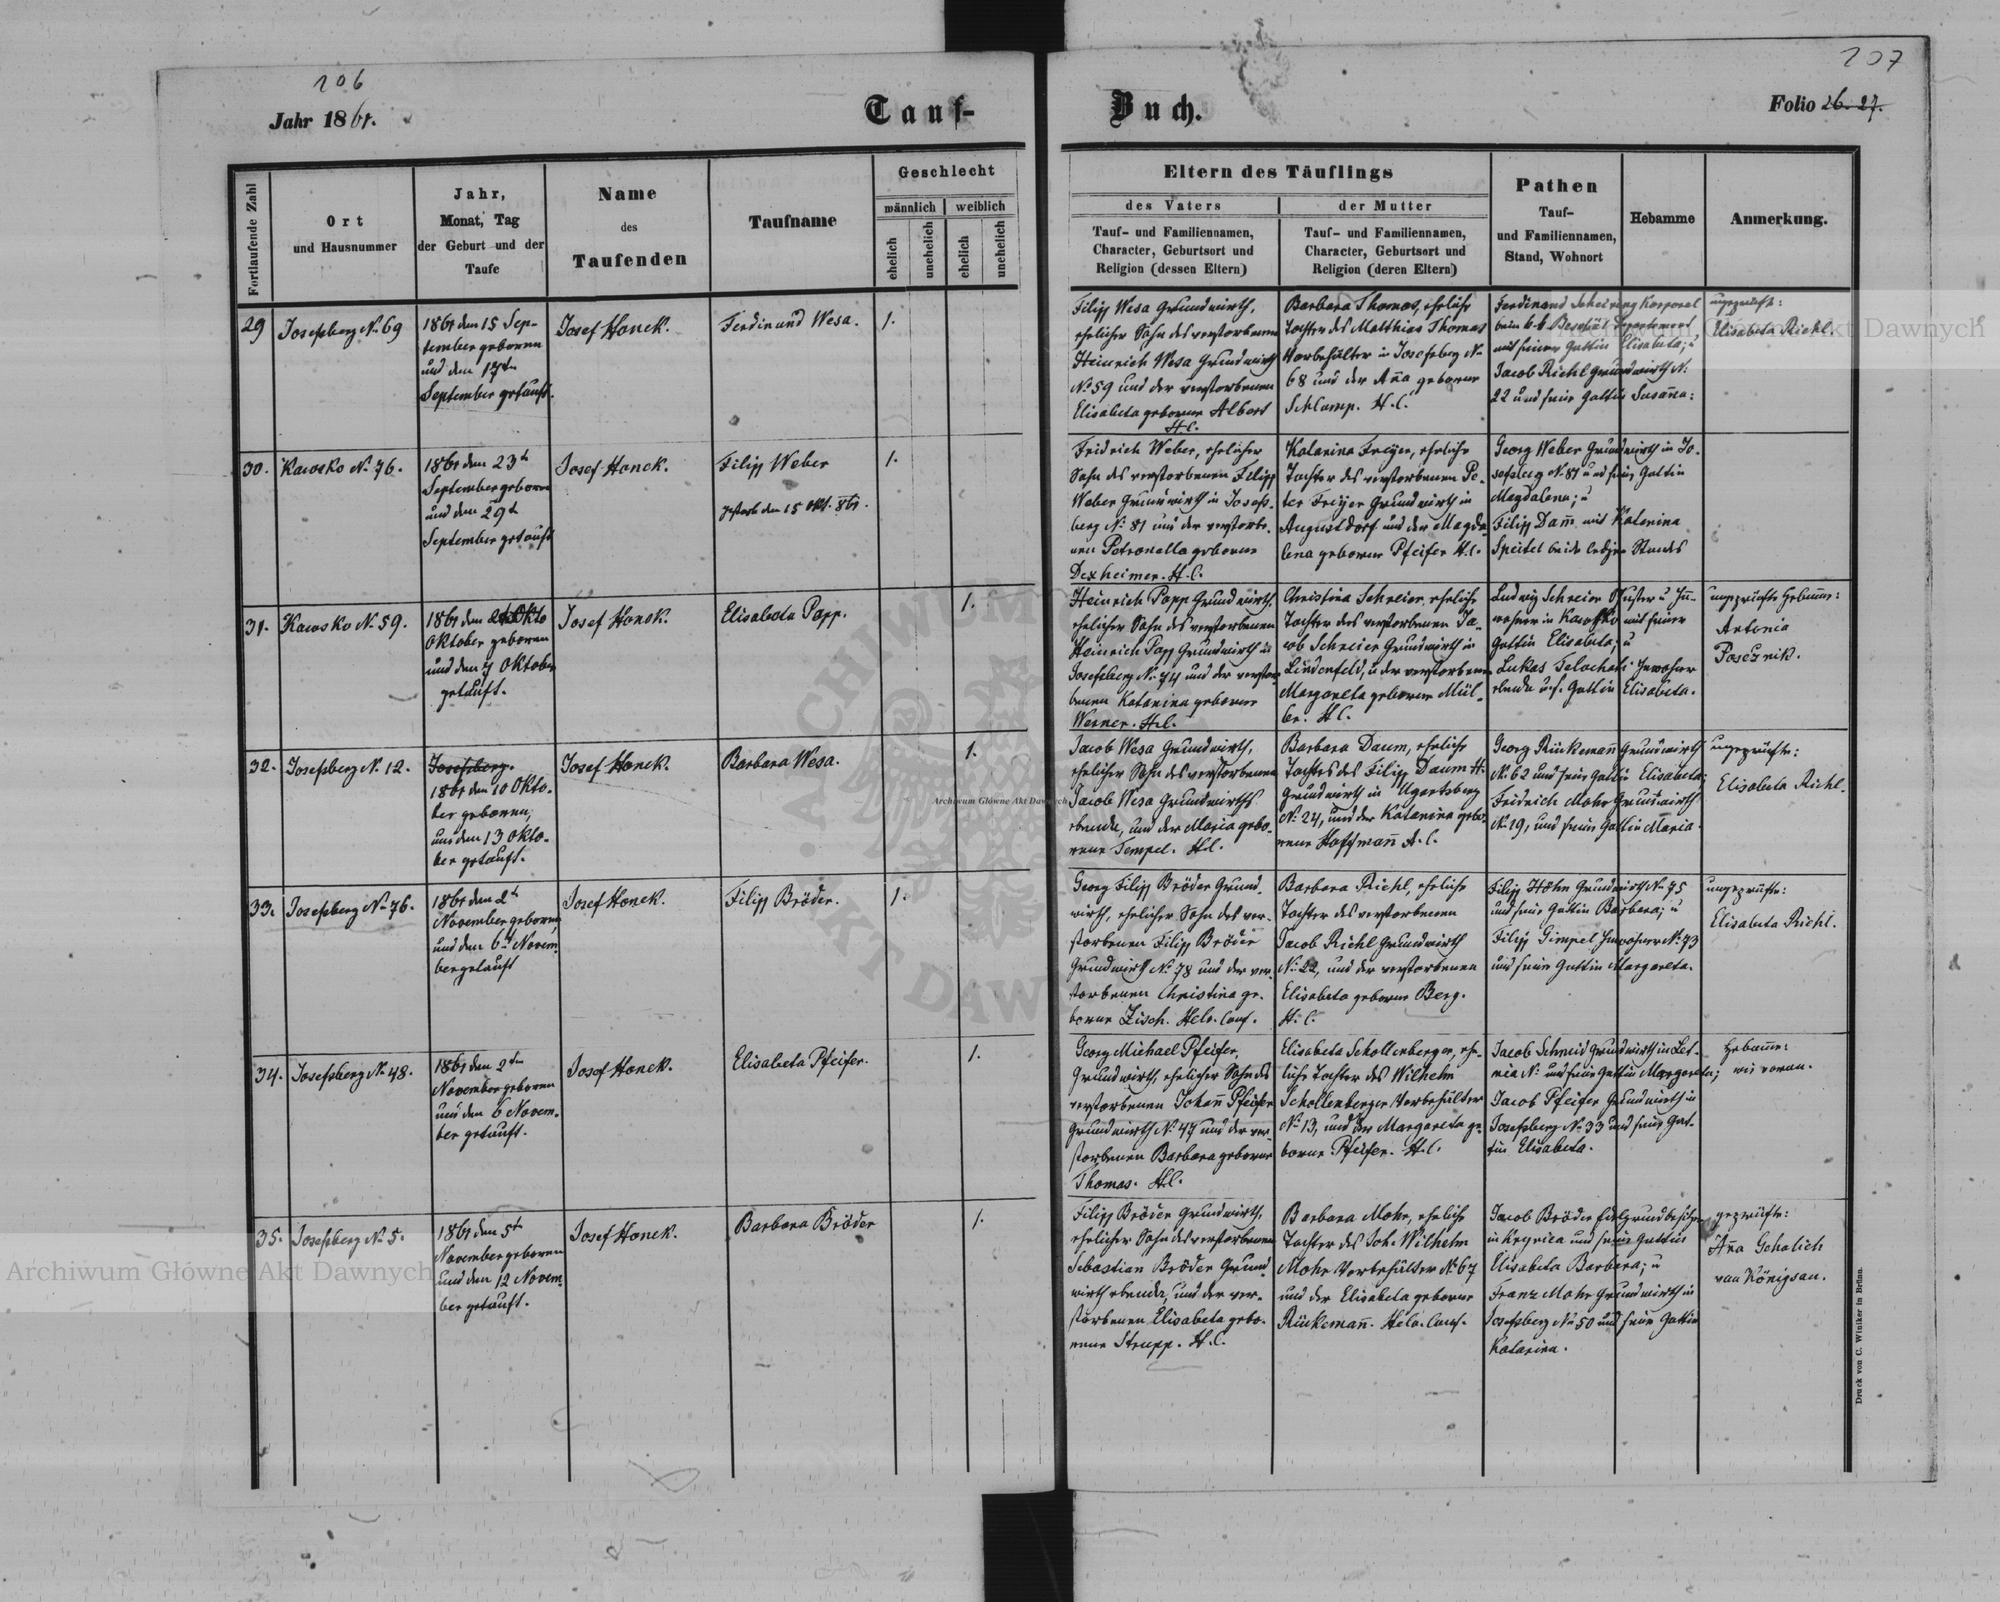 206
207
Jahr 1861.
Tauf-
Buch.
Folio 26-27.
Fortlaufende Zahl
Ort
und Hausnummer
Jahr,
Monat, Tag
der Geburt und der
Taufe
Name
des
Taufenden
Taufname
Geschlecht
männlich
weiblich
ehelich
unehelich
ehelich
unehelich
Eltern des Täuflings
des Vaters
Tauf- und Familiennamen,
Character, Geburtsort und
Religion (dessen Eltern)
der Mutter
Tauf- und Familiennamen,
Character, Geburtsort und
Religion (deren Eltern)
Pathen
Tauf-
und Familiennamen,
Stand, Wohnort
Hebamme
Anmerkung.
29
Josefsberg No 69
1861 den 15 Sep-
tember geboren
und den 17ten
September getauft.
Josef Honek.
Ferdinand Wesa.
1.
Filipp Wesa Grundwirth,
ehelicher Sohn des verstorbenen
Heinrich Wesa Grundwirth
No 59 und der verstorbenen
Elisabeta geborne Albert
H.C.
Barbara Thomas, eheliche
Tochter des Matthias Thomas
Vorbehälter in Josefsberg No
68 und der Anna geborne
Schlamp. H.C.
Ferdinand Scheiring Korporal
beim k.k. Beschäl Departement
mit seiner Gattin Elisabeta; u
Jacob Riehl Grundwirth No
22 und seine Gattin Susanna:
ungeprüfte:
Elisabeta Riehl.
30.
Kawsko No 76.
1861 den 23ten
September geboren
und den 29ten
September getauft
Josef Honek.
Filipp Weber
gestorb den 15 Okt. 861.
1.
Fridrich Weber, ehelicher
Sohn des verstorbenen Filipp
Weber Grundwirth in Josefs-
berg No 81 und der verstorbe-
nen Petronella geborne
Dexheimer. H.C.
Katarina Freyer, eheliche
Tochter des verstorbenen Pe-
ter Freyer Grundwirth in
Augustdorf und der Magda-
lena geborne Pfeifer H.C.
Georg Weber Grundwirth in Jo-
sefsberg No 81 und seine Gattin
Magdalena; u
Filipp Damm mit Katarina
Speitel beide ledigen Standes
31.
Kawsko No 59.
1861 den
Oktober geboren
und den 7 Oktober
getauft.
Josef Honek.
Elisabeta Popp.
1.
Heinrich Popp Grundwirth,
ehelicher Sohn des verstorbenen
Heinrich Popp Grundwirth in
Josefsberg No 74 und der verstor-
benen Katarina geborne
Werner. H.C.
Christina Schreier, eheliche
Tochter des verstorbenen Ja-
cob Schreier Grundwirth in
Lindenfeld, u der verstorbenen
Margareta geborne Mül-
ler. H.C.
Ludwig Schreier
in Kawsko mit seiner
Gattin Elisabeta; u
Lukas
Gattin Elisabeta.
ungeprüfte Hebamme:
Antonia
Posežnik.
32.
Josefsberg No 12.
Josefsberg.
1861 den 10 Okto-
ber geboren,
und den 13 Okto-
ber getauft.
Josef Honek.
Barbara Wesa.
1.
Jacob Wesa Grundwirth,
ehelicher Sohn des verstorbenen
Jacob Wesa Grundwirths
ebenda, und der Maria gebo-
rene Tempel. H.C.
Barbara Daum, eheliche
Tochter des Filipp Daum H.
Grundwirth in Ugartsberg
No 24, und der Katarina gebo-
rene Hoffmann H.C.
Georg Rückemann Grundwirth
No 62 und seine Gattin Elisabeta;
Fridrich Mohr Grundwirth
No 19, und seine Gattin Maria.
ungeprüfte:
Elisabeta Riehl.
33.
Josefsberg No 76.
1861 den 2ten
November geboren,
und den 6ten Novem-
ber getauft
Josef Honek.
Filipp Bröder.
1.
Georg Filipp Bröder Grund-
wirth, ehelicher Sohn des ver-
storbenen Filipp Bröder
Grundwirth No 78 und der ver-
storbenen Christina ge-
borne Zisch. Helv. Conf.
Barbara Riehl, eheliche
Tochter des verstorbenen
Jacob Riehl Grundwirth
No 22, und der verstorbenen
Elisabeta geborne Berg.
H.C.
Filipp Höhn Grundwirth No 75
und seine Gattin Barbara; u
Filipp Gimpel Inwohner No 73
und seine Gattin Margareta.
ungeprüfte:
Elisabeta Riehl.
34.
Josefsberg No 48.
1861 den 2ten
November geboren
und den 6 Novem-
ber getauft.
Josef Honek.
Elisabeta Pfeifer.
1.
Georg Michael Pfeifer,
Grundwirth, ehelicher Sohn des
verstorbenen Johann Pfeifer
Grundwirth No 47 und der ver-
storbenen Barbara geborne
Thomas. H.C.
Elisabeta Schollenberger, ehe-
liche Tochter des Wilhelm
Schollenberger Vorbehälter
No 13, und der Margareta ge-
borne Pfeifer. H.C.
Jacob Schneid Grundwirth in Let-
nia No und seine Gattin Margareta;
Jacob Pfeifer Grundwirth in
Josefsberg No 33 und seine Gat-
tin Elisabeta.
Hebamme:
wie voran.
35.
Josefsberg No 5.
1861 den 5ten
November geboren
und den 12 Novem-
ber getauft.
Josef Honek.
Barbara Bröder
1.
Filipp Bröder Grundwirth,
ehelicher Sohn des verstorbenen
Sebastian Bröder Grund-
wirth ebenda, und der ver-
storbenen Elisabeta gebo-
rene Strupp. H.C.
Barbara Mohr, eheliche
Tochter des Joh. Wilhelm
Mohr Vorbehälter No 67
und der Elisabeta geborne
Rückemann. Helv. Conf.
Jacob Bröder Grundbesitzer
in Krynica und seine Gattin
Elisabeta Barbara; u
Franz Mohr Grundwirth in
Josefsberg No 50 und seine Gattin
Katarina.
geprüfte:
Anna Gohalich
von Königsau.
Druck von C. Winiker in Brünn.
Archiwum Główne Akt Dawnych
Archiwum Główne Akt Dawnych
Archiwum Główne Akt Dawnych